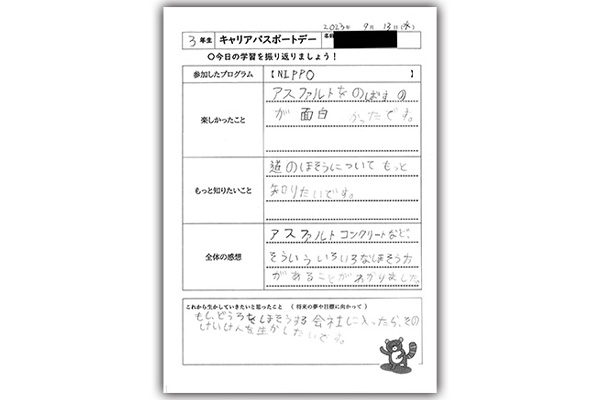 2023年 9月 13日(水)
3年生 キャリアパスポートデー 名前
〇今日の学習を振り返りましょう！
参加したプログラム 【NIPPO 】
楽しかったこと
アスファルトをのばすの
が面白 かったです。
もっと知りたいこと
道のほそうについてもっと
知りたいです。
全体の感想
アスファルトコンクリートなど、
そういういろいろなほそう方
があることがわかりました。
これから生かしていきたいと思ったこと （将来の夢や目標に向かって）
もし、どうろをほそうする会社に入ったら、その
けいけんを生かしたいです。